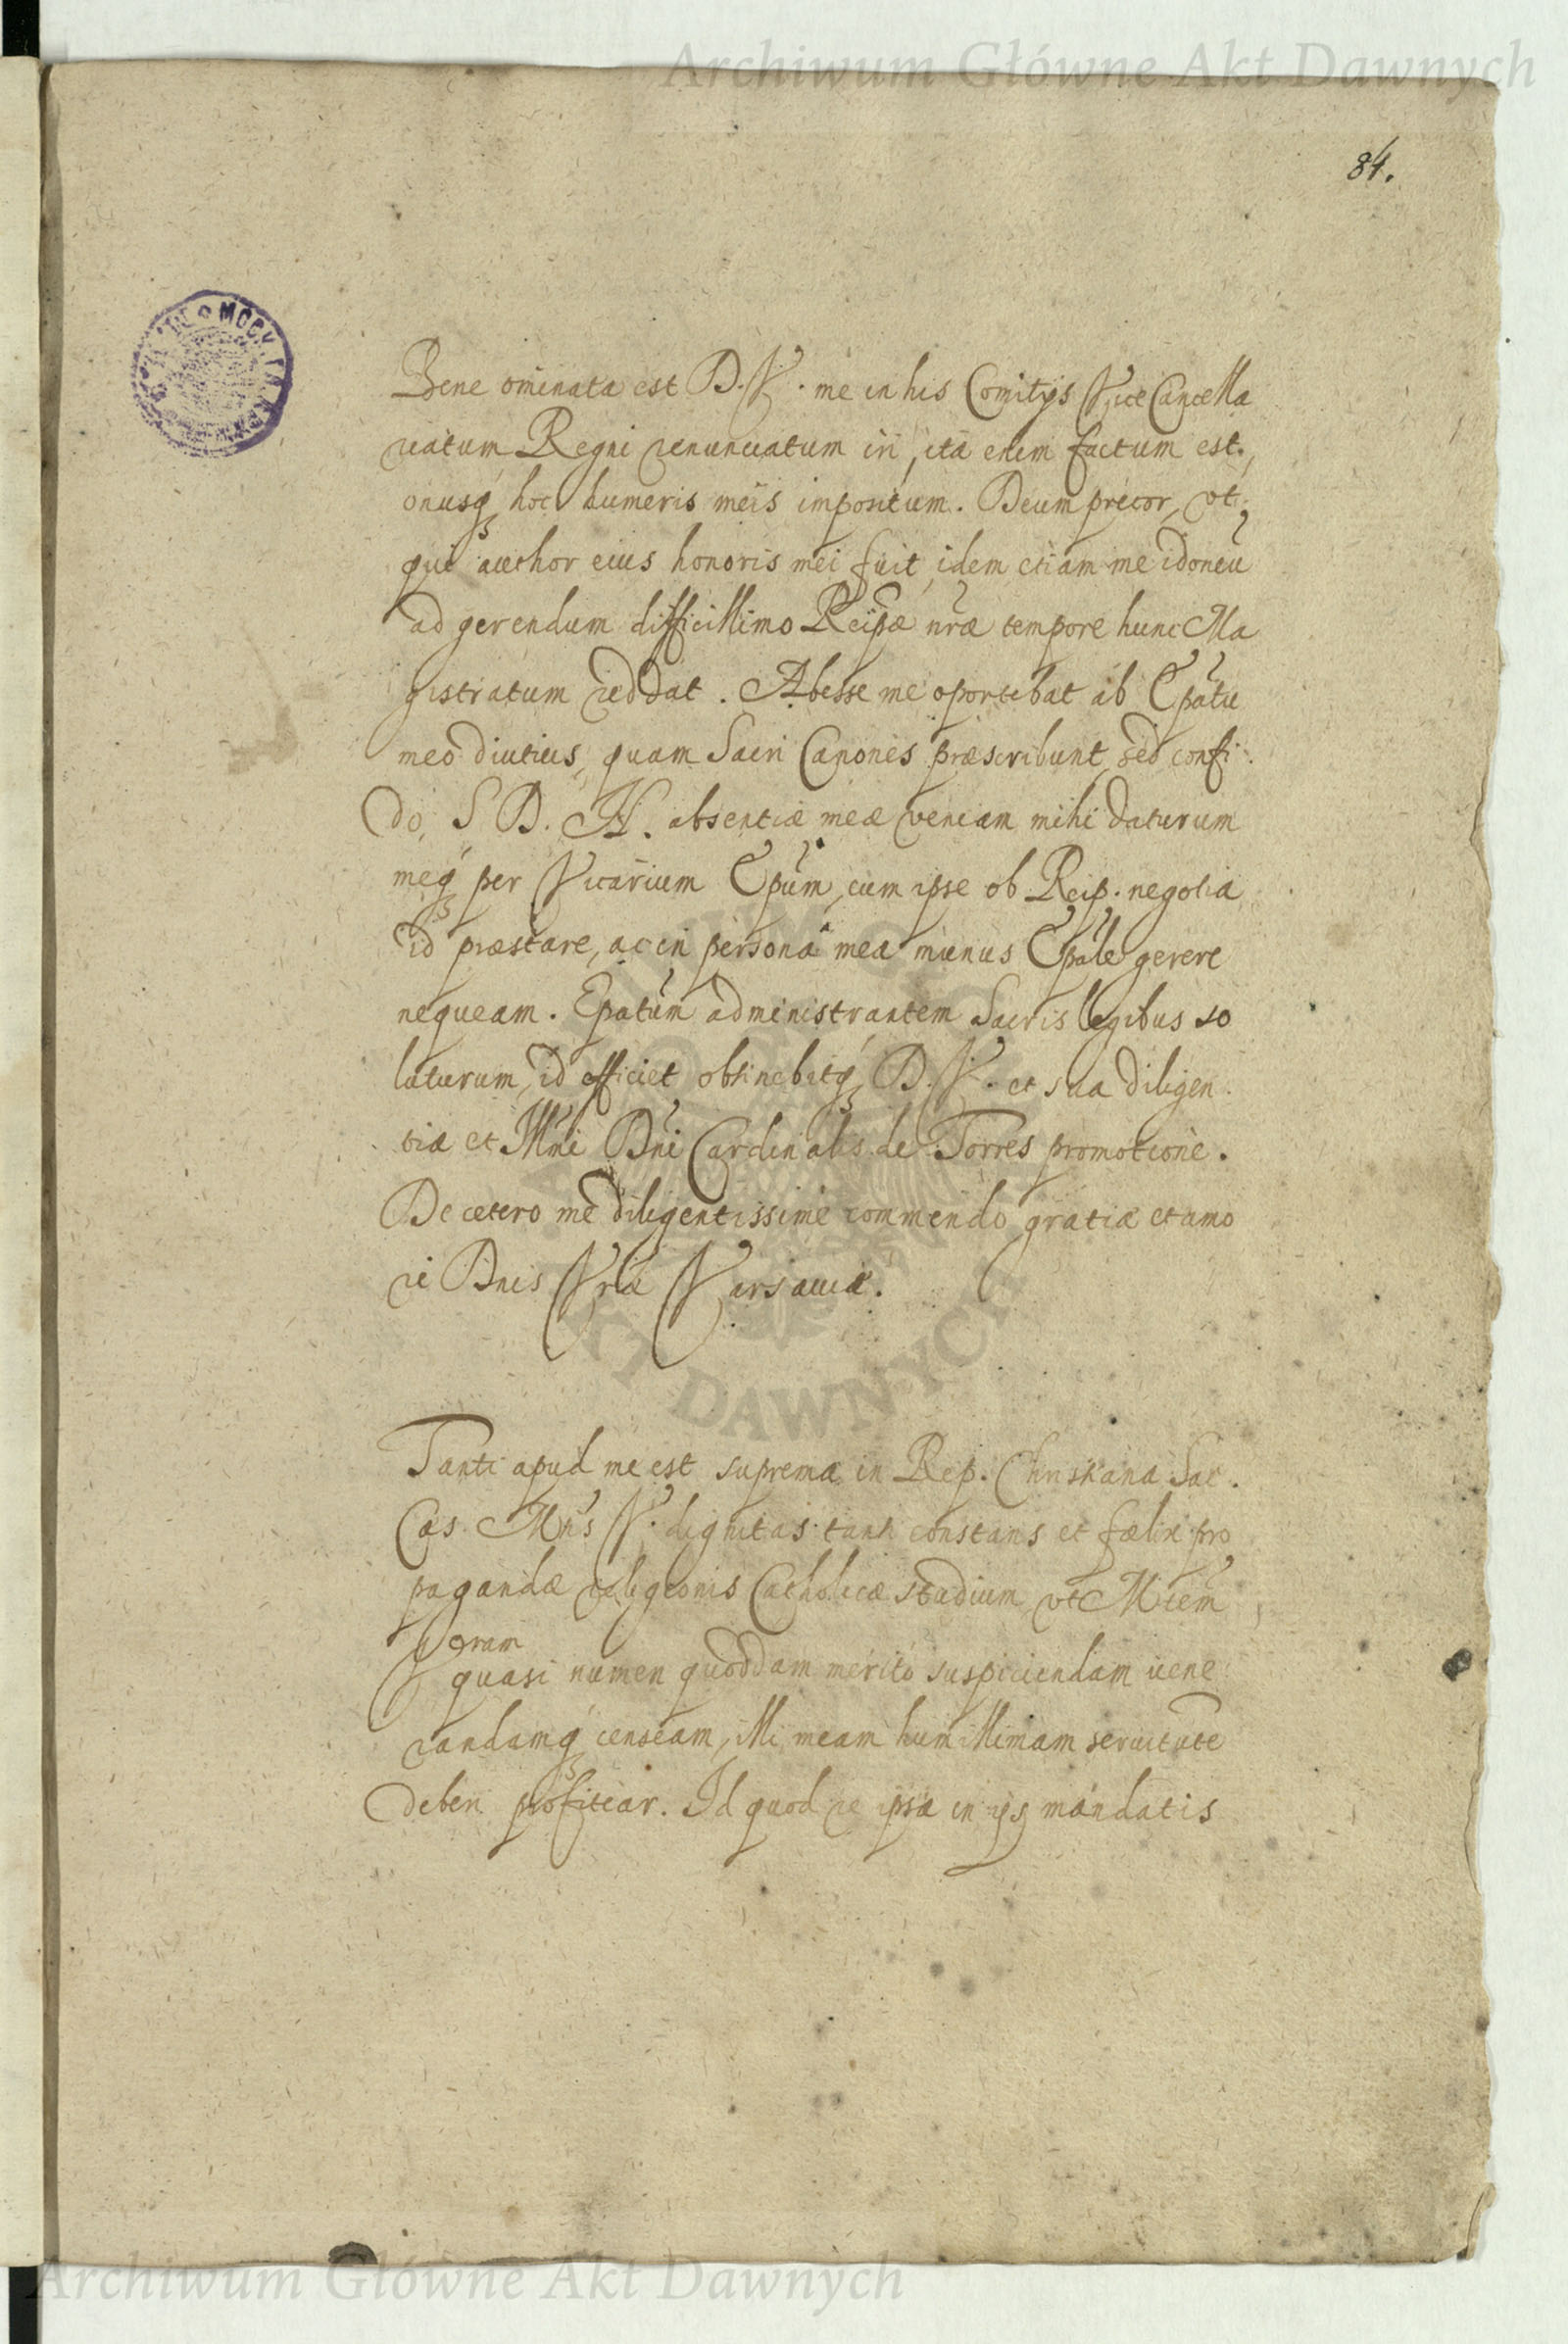 Archiwum Główne Akt Dawnych
84.
Bene ominata est D. V. me in his Comitijs ViceCancella
riatum Regni renunciatum iri, ita enim factum est,
onusq hoc humeris meis impositum. Deum precor, vt
qui author eius honoris mei fuit, idem etiam me idoneū
ad gerendum difficillimo Reipæ nræ tempore hunc Ma
gistratum reddat. Abesse me oportebat ab Epatu
meo diutius, quam Sacri Canones præscribunt, sed confi
do, S D. N. absentiæ meæ veniam mihi daturum
meq per Vicarium Epum, cum ipse ob Reip. negotia
id præstare, ac in persona mea munus Epale gerere
nequeam. Epatum administrantem Sacris legibus so
luturum, id efficiet obtinebitq D. V. et sua diligen
tia et Illmi Dni Cardinalis de Torres promotione.
De cetero me diligentissime commendo gratiæ et amo
ri Dnis Vræ Varsauiæ.
Tanti apud me est suprema in Rep. Christiana Sac.
Cæs. Mtis V. dignitas tanti constans et fælix pro
pagandæ religionis Catholicæ studium vt Mtem
Vram
quasi numen quoddam merito suspiciendam uene
randamq censeam, illi meam humillimam seruitute
deberi profitear. Id quod re ipsa in ijs mandatis
AKT DAWNYCH
Archiwum Główne Akt Dawnych